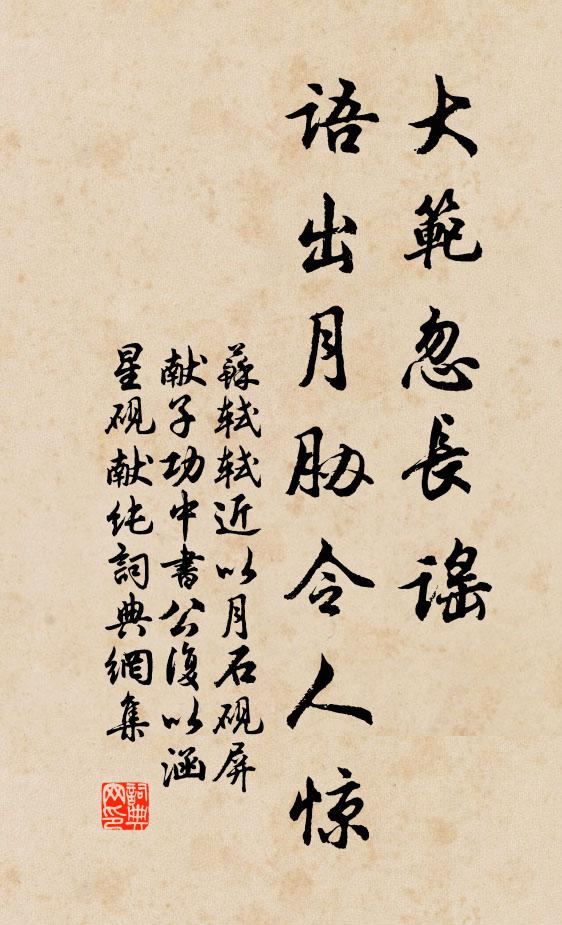 大範忽長謠
語出月胁令人惊
蘇轼轼近以月石砚屏
献子功中書公復以涵
星砚献纯詞典網集
詞典网印